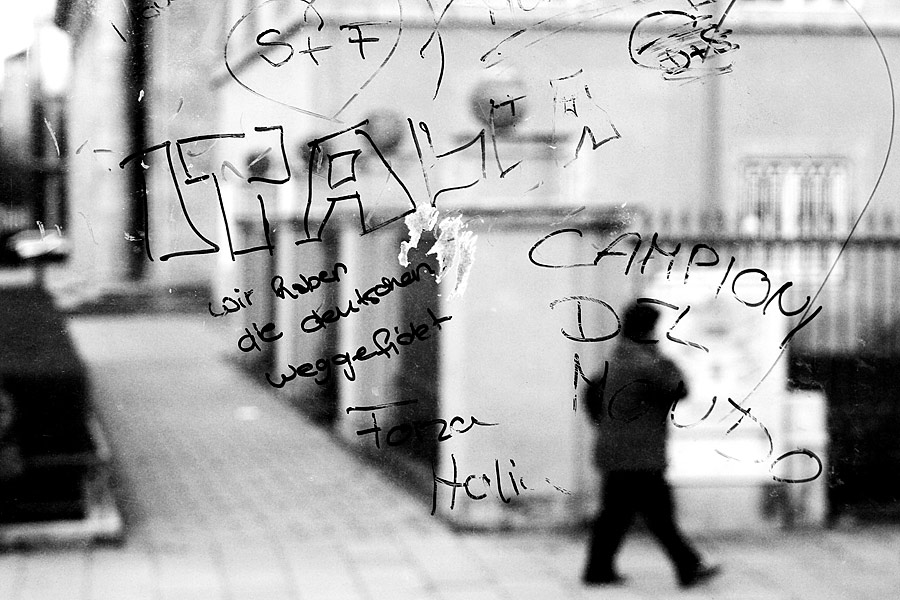 S+F
D+S
ITALIA
wir haben
die deutschen
weggefidet
Forza
Itali
CAMPIONI
DEL
MONDO